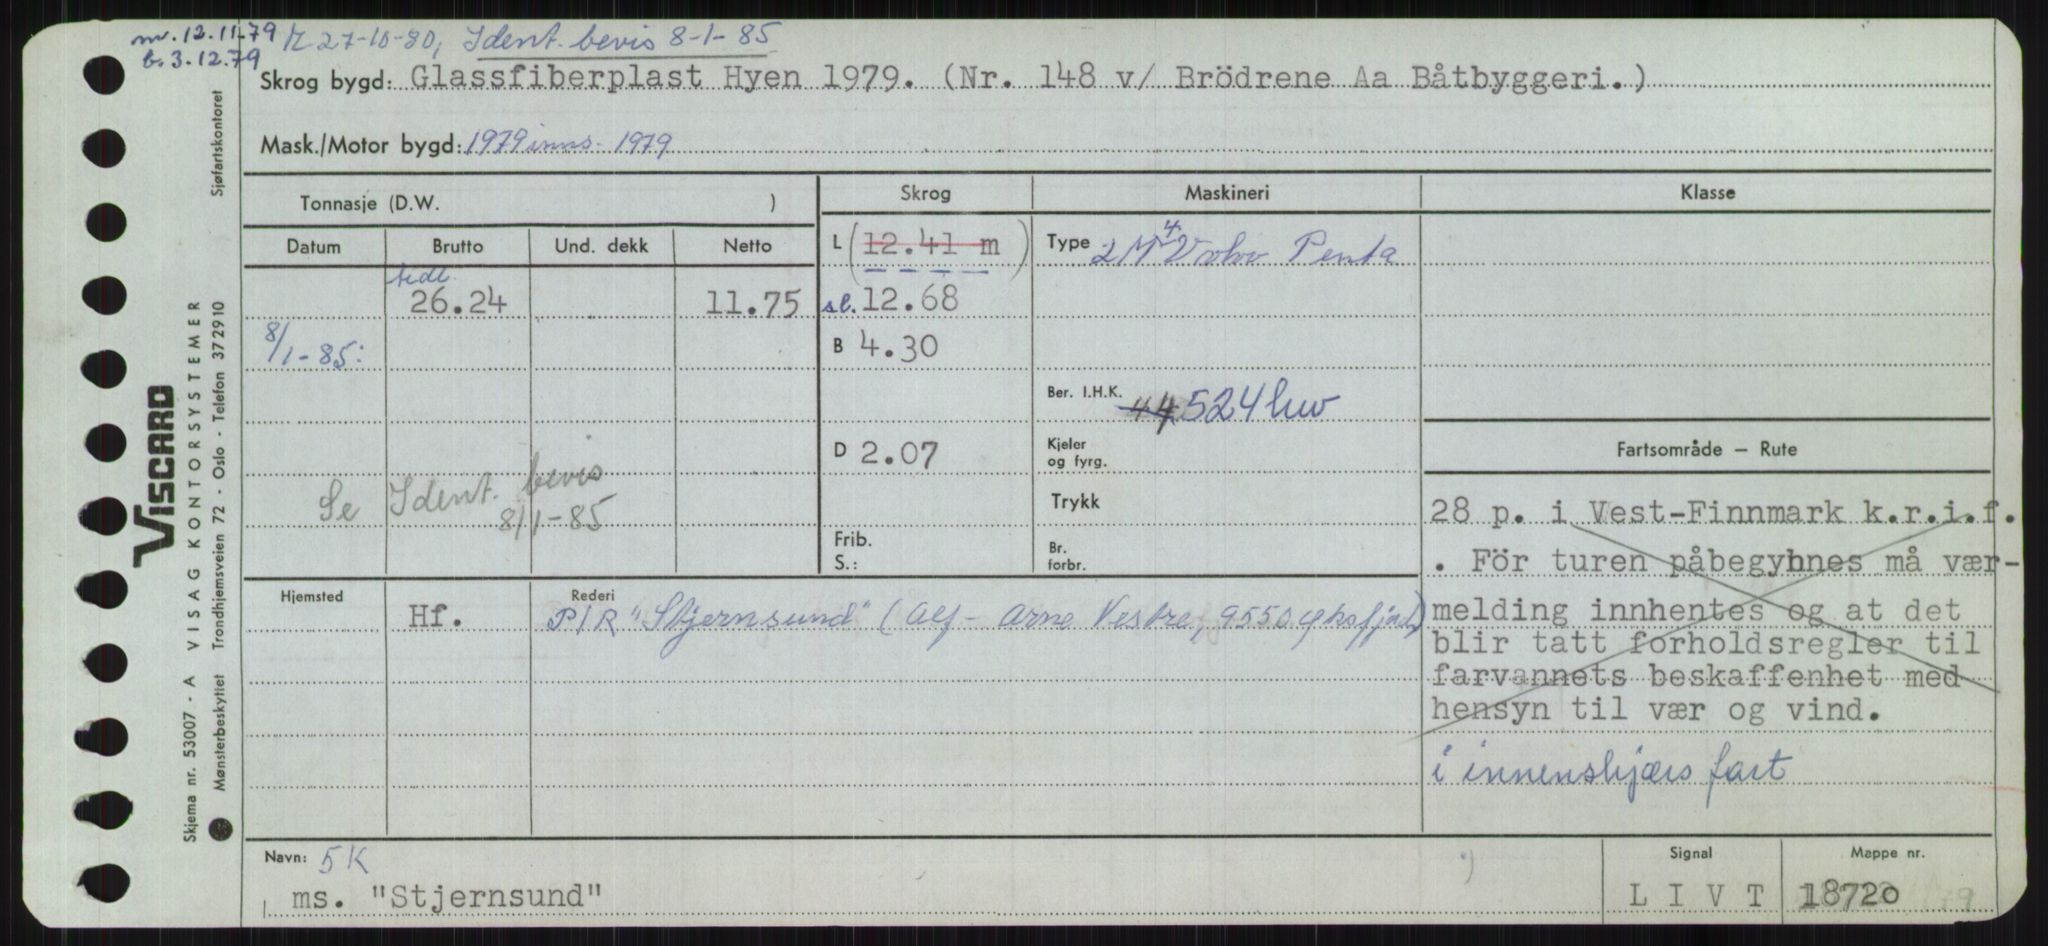 nv. 12.11.79 M 27-10-80, Ident. bevis 8-1-85
b. 3.12.79
Skrog bygd: Glassfiberplast Hyen 1979. (Nr. 148 v/ Brödrene Aa Båtbyggeri.)
Mask./Motor bygd: 1979 inns. 1979
Tonnasje (D.W. )
Skrog
Maskineri
Klasse
Datum Brutto Und. dekk Netto
L (12.41 m)
Type 2 M 4 Volvo Penta
tidl.
26.24 11.75
sl. 12.68
8/1-85:
B 4.30
Ber. I.H.K. 44 524 kw
D 2.07
Kjeler
og fyrg.
Fartsområde — Rute
Se Ident. bevis
8/1-85
Trykk
Frib.
S.:
Br.
forbr.
28 p. i Vest-Finnmark k.r.i.f.
. För turen påbegynnes må vær-
melding innhentes og at det
blir tatt forholdsregler til
farvannets beskaffenhet med
hensyn til vær og vind.
i innenskjærs fart
Hjemsted
Rederi
Hf. P/R "Stjernsund" (Alf-Arne Vestre, 9550 Øksfjord)
Navn: 5K
ms. "Stjernsund"
Signal
L I V T
Mappe nr.
18720
VISCARD
Skjema nr. 53007 - A VISAG KONTORSYSTEMER
Mønsterbeskyttet Trondhjemsveien 72 - Oslo - Telefon 372910
Sjøfartskontoret